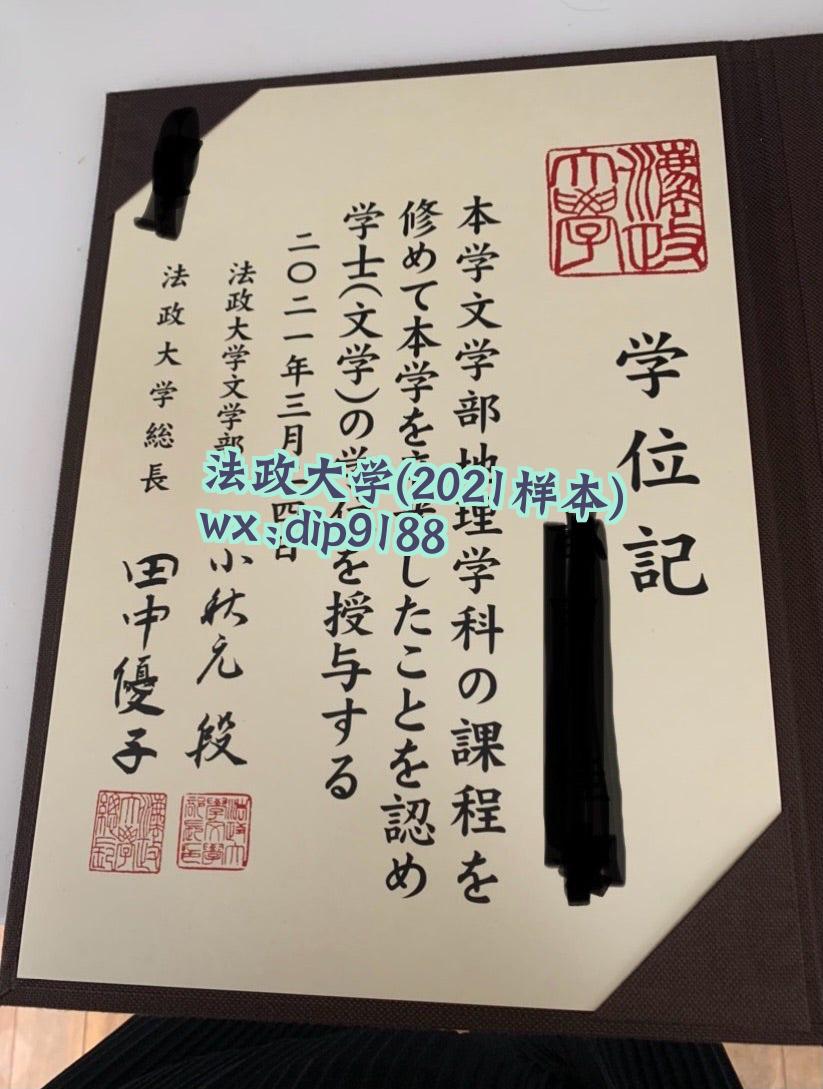 学位記
本学文学部地理学科の課程を
修めて本学を したことを認め
学士(文学)の学位を授与する
二〇二一年三月 四日
法政大学文学部
小秋元 段
法政大学総長
田中優子
法政大学(2021样本)
wx:dip9188